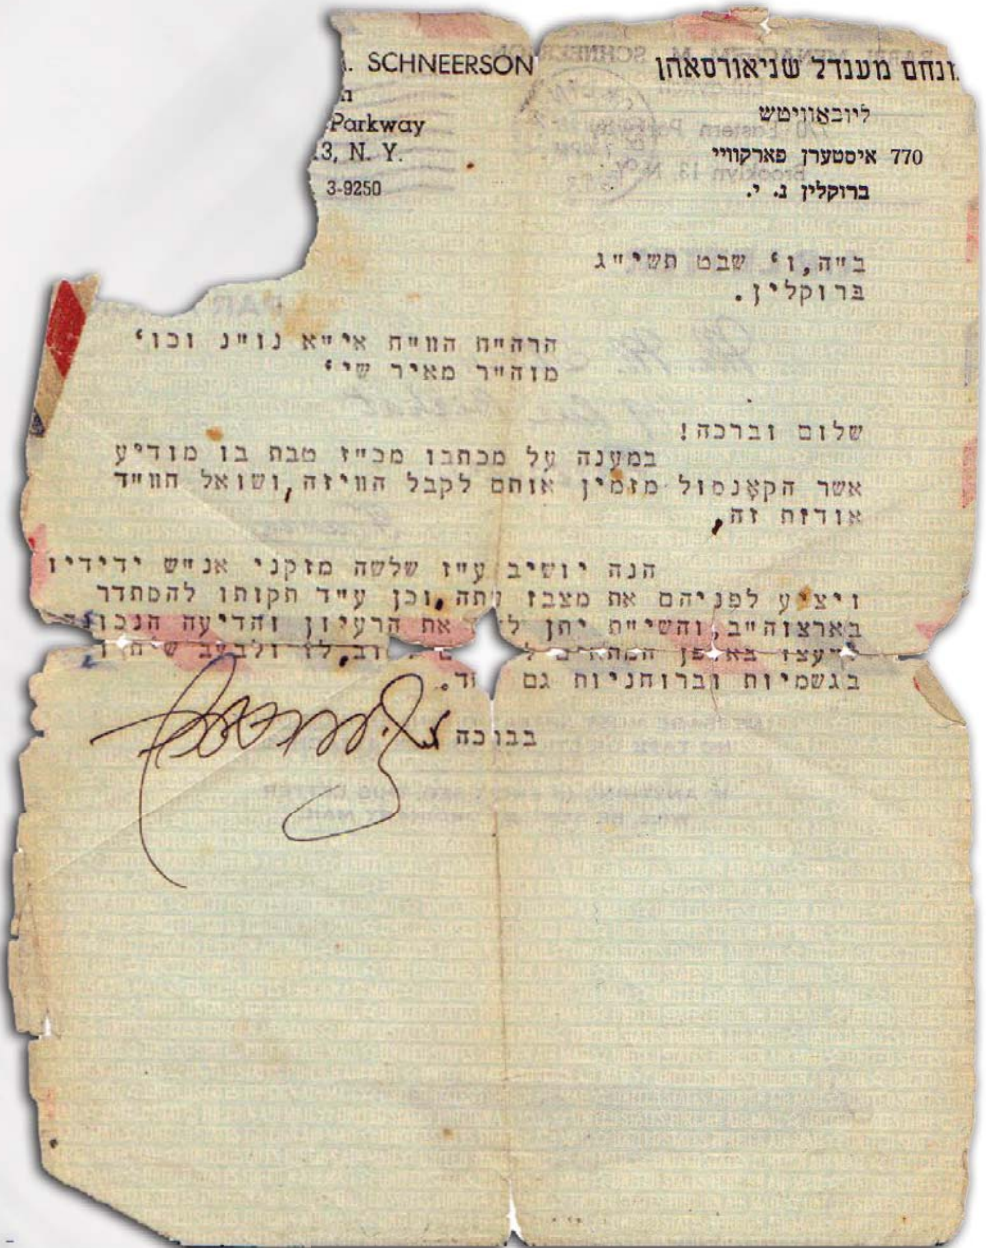 . SCHNEERSON
Parkway
13, N. Y.
3-9250
מנחם מענדל שניאורסאהן
ליובאוויטש
770 איסטערן פארקוויי
ברוקלין נ. י.
ב"ה, ו' שבט תשי"ג
ברוקלין.
הרה"ח הוו"ח אי"א נו"נ וכו'
מוה"ר מאיר שי'
שלום וברכה!
במענה על מכתבו מכ"ז טבת בו מודיע
אשר הקאנסול מזמין אותם לקבל הוויזה, ושואל חוו"ד
אודות זה,
הנה יושיב ע"ז שלשה מזקני אנ"ש ידידיו
ויציע לפניהם את מצבו עתה, וכן ע"ד תקותו להסתדר
בארצוה"ב, והשי"ת יתן את הרעיון והדיעה הנכונה
ליעצו באופן המתאים לטוב, לו ולבעב שיחיו
בגשמיות וברוחניות גם יחד.
בברכה